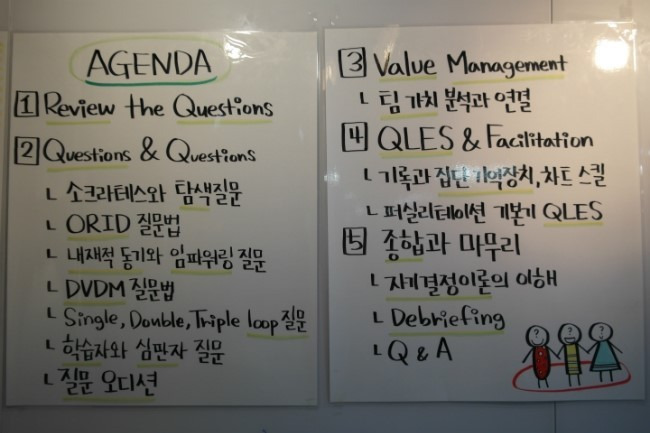 AGENDA
1 Review the Questions
2 Questions & Questions
ㄴ 소크라테스와 탐색질문
ㄴ ORID 질문법
ㄴ 내재적 동기와 임파워링 질문
ㄴ DVDM 질문법
ㄴ Single, Double, Triple loop 질문
ㄴ 학습자와 심판자 질문
ㄴ 질문 오디션
3 Value Management
ㄴ 팀 가치 분석과 연결
4 QLES & Facilitation
ㄴ 기록과 집단기억장치, 차트 스킬
ㄴ 퍼실리테이션 기본기 QLES
5 종합과 마무리
ㄴ 자기결정이론의 이해
ㄴ Debriefing
ㄴ Q & A
? ? ?